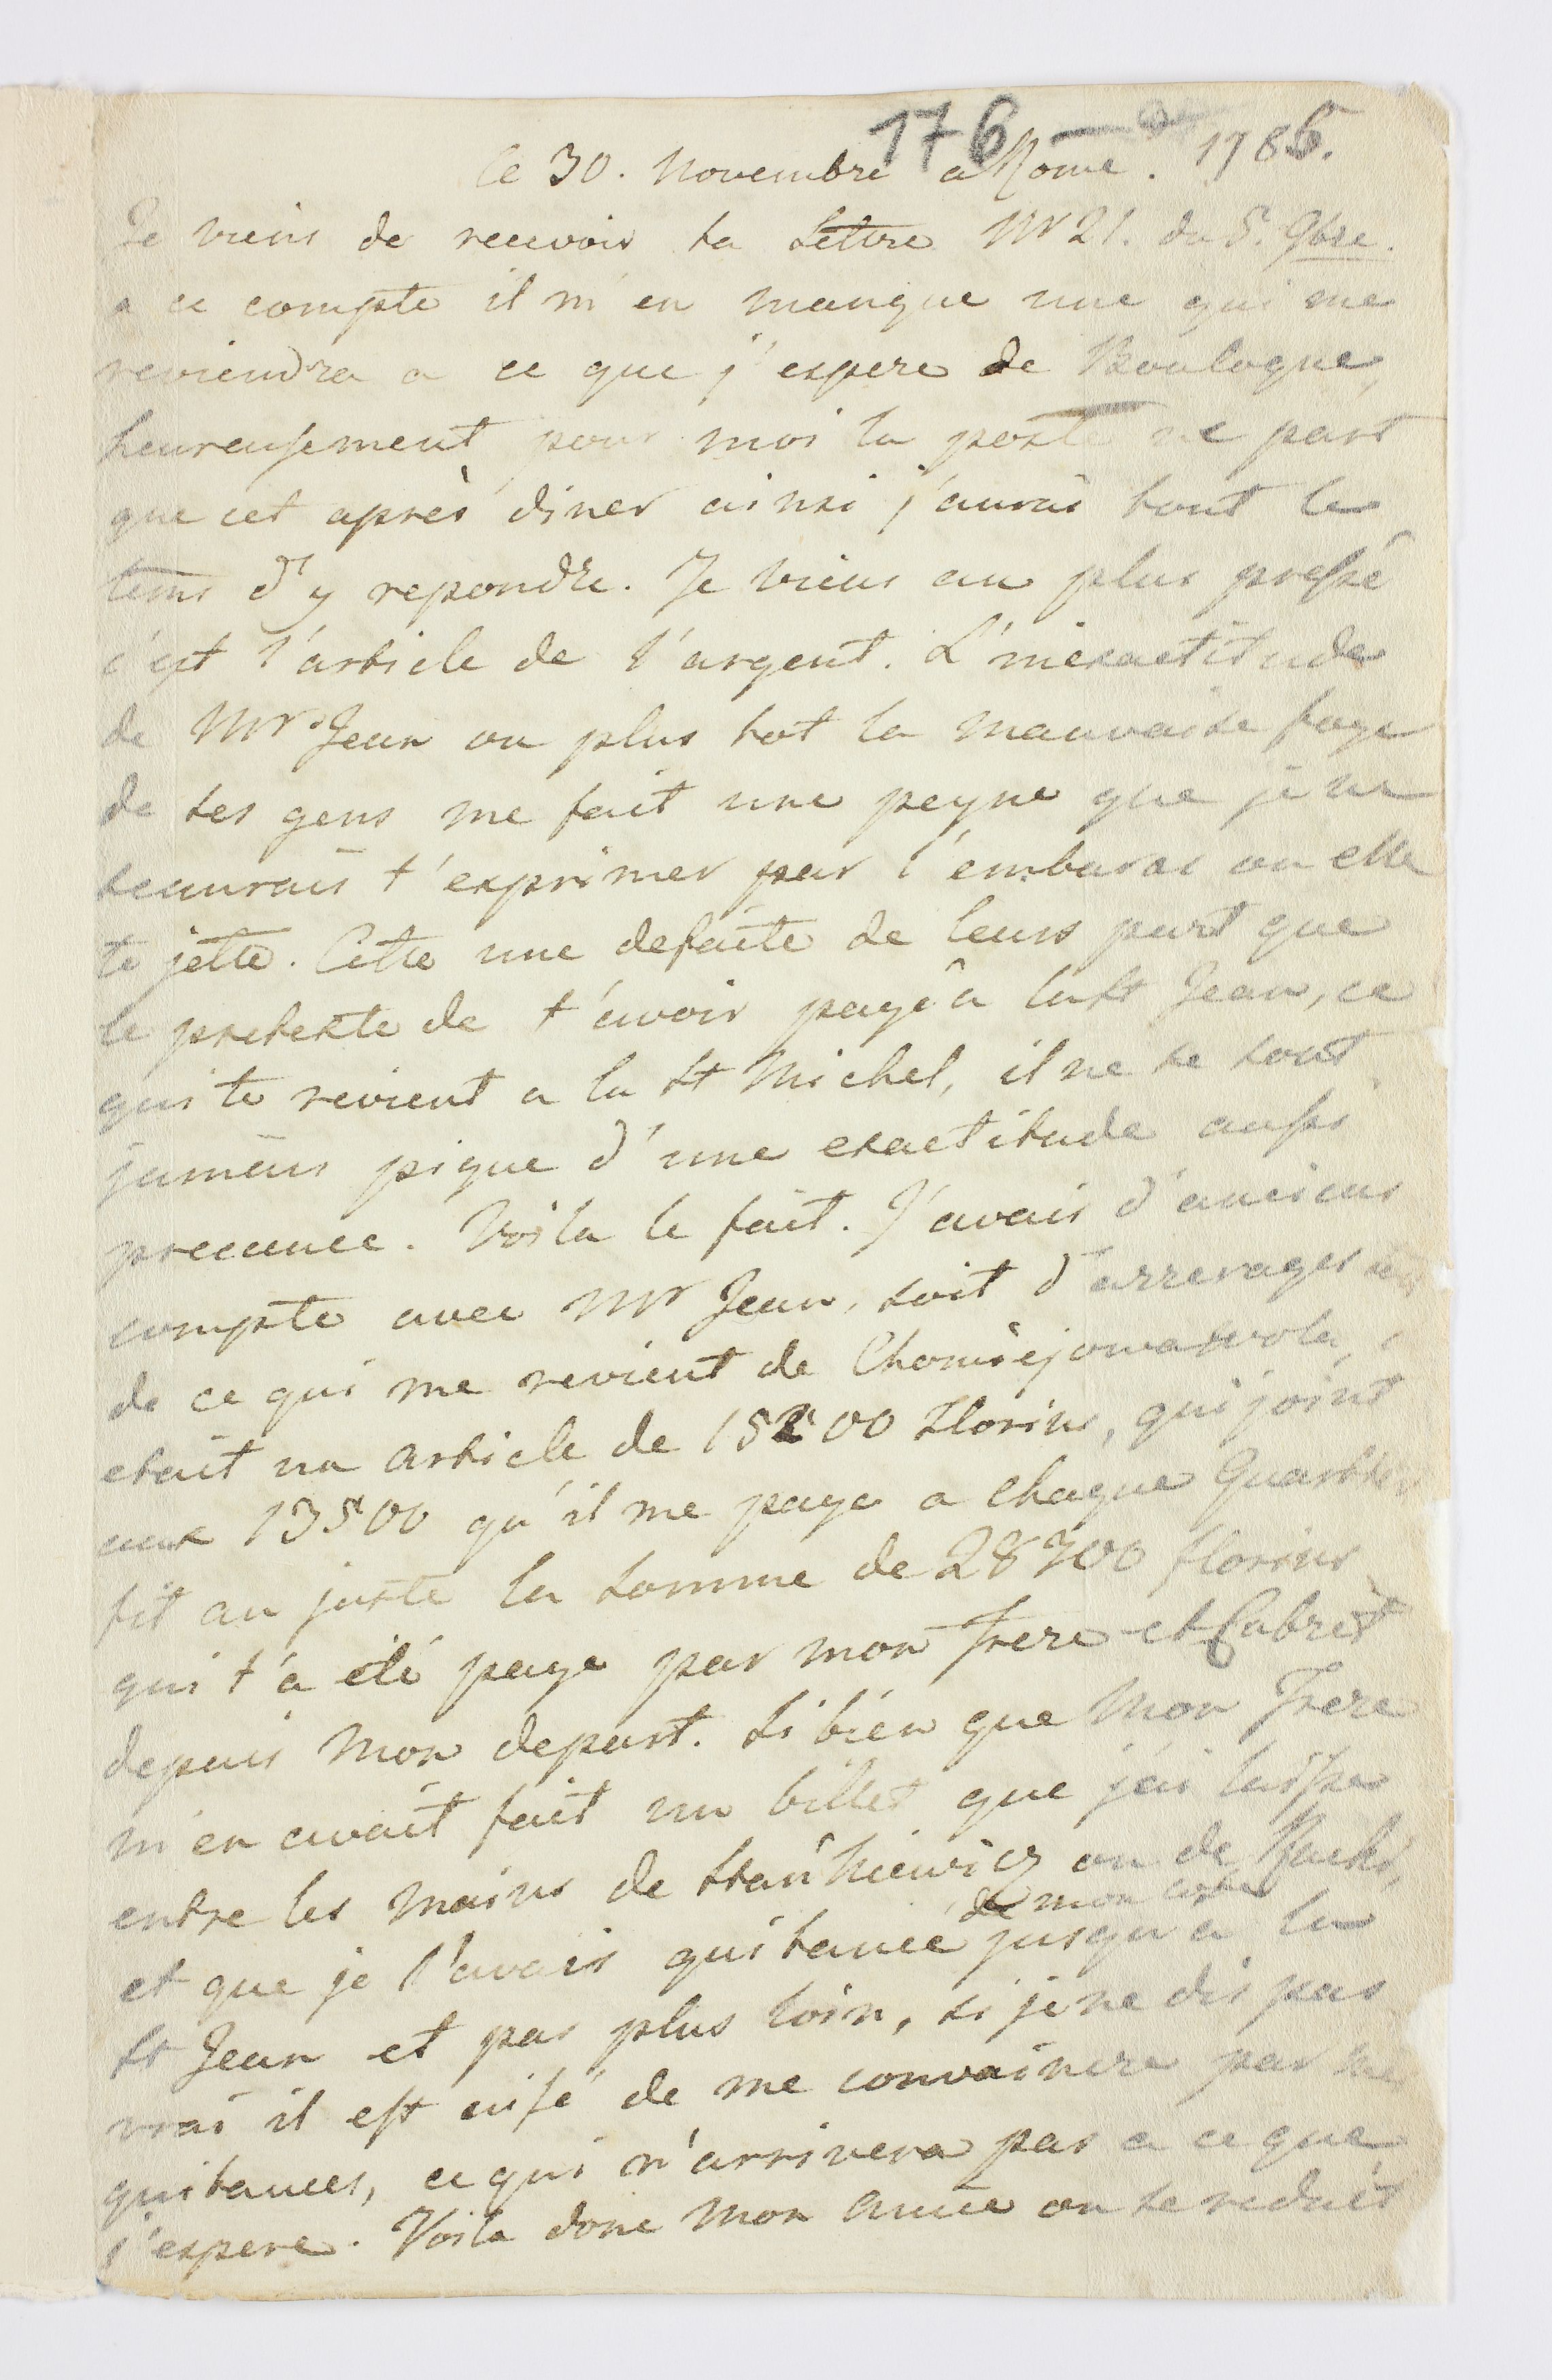 176
le 30. Novembre a Rome. 1785.
Je viens de recevoir ta Lettre Nr 21. du 5. 9bre.
a ce compte il m'en manque une qui me
reviendra a ce que j'espere de Boulogne,
heureusement pour moi la poste ne part
que cet après diner ainsi j'aurai tout le
tems d'y repondre. Je viens au plus pressé
c'est l'article de l'argent. L'inexactitude
de Mr. Jean ou plus tot la mauvaise foye
de ses gens me fait une peyne que je ne
saurais t'exprimer par l'embaras ou elle
te jette. Cette une defaite de leurs part que
le pretexte de t'avoir payé a la St Jean, ce
qui te revient a la St Michel, il ne se sont
jamais pique d'une exactitude aussi
. Voila le fait. J'avais d'anciens
compte avec Mr Jean, soit d'arrerages
de ce qui me revient de
etait un article de 15200 Florins, qui joint
aux 13500 qu'il me paye a chaque Quartier
fit au juste la somme de 28700 florins
qui t'a été paye par mon Frere et Cabrit
depuis mon depart. Si bien que mon Frere
m'en avait fait un billet que j'ai laisse
entre les mains de Stańkiewicz ou de
de mon
et que je l'avais quitancé jusqu'a la
St Jean et pas plus loin, si je ne dis pas
vrai il est aisé de me convaincre par
quitances, ce qui n'arrivera pas a ce que
j'espere. Voila donc mon amie ou se reduit